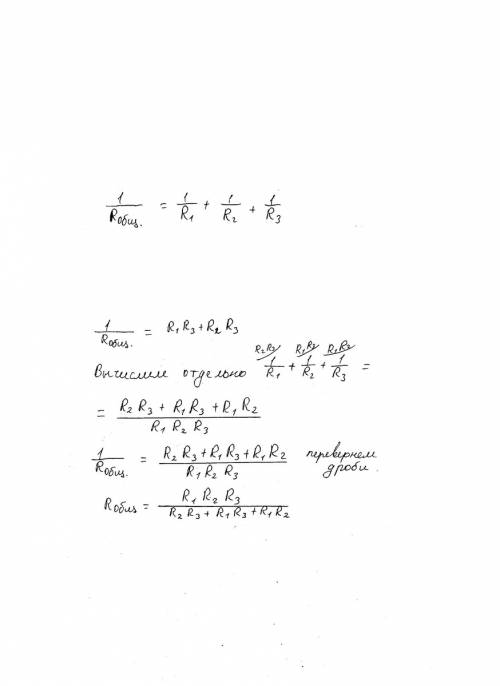 1/Rобщ. = 1/R₁ + 1/R₂ + 1/R₃
1/Rобщ. = R₁R₃ + R₂R₃
Вычислим отдельно R₂R₃/ 1/R₁ + R₁R₂/ 1/R₂ + R₁R₂/ 1/R₃ =
= (R₂R₃ + R₁R₃ + R₁R₂)/(R₁R₂R₃)
1/Rобщ. = (R₂R₃ + R₁R₃ + R₁R₂)/(R₁R₂R₃) перевернем дроби.
Rобщ = (R₁R₂R₃)/(R₂R₃ + R₁R₃ + R₁R₂)